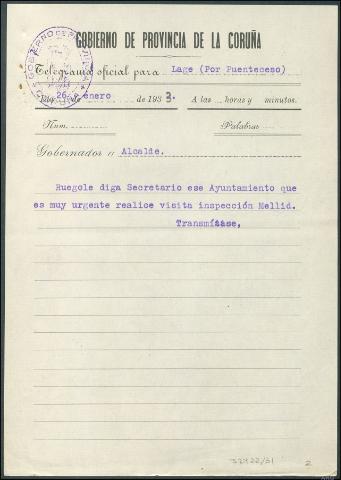 GOBIERNO DE PROVINCIA DE LA CORUÑA
Telegrama oficial para Lage (Por Puenteceso)
26 de enero de 1933. A las horas y minutos.
Núm. Palabras
Gobernador a Alcalde.
Ruegole diga Secretario ese Ayuntamiento que
es muy urgente realice visita inspección Mellid.
Transmítase,
32422/31
2